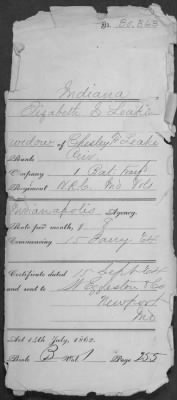 No. 30,363
Indiana
Elizabeth E Leake
widow of Chesley D Leake
Rank Civ.
Company 1 Bat Inf
Regiment V.R.C. Mo Vols
Indianapolis Agency.
Rate per month, $ 8
Commencing 15 Jany 64
Certificate dated 15 Sept 64
and sent to W Eggleston & Co
Newport
Act 14th July, 1862.
Book B Vol 1 Page 255